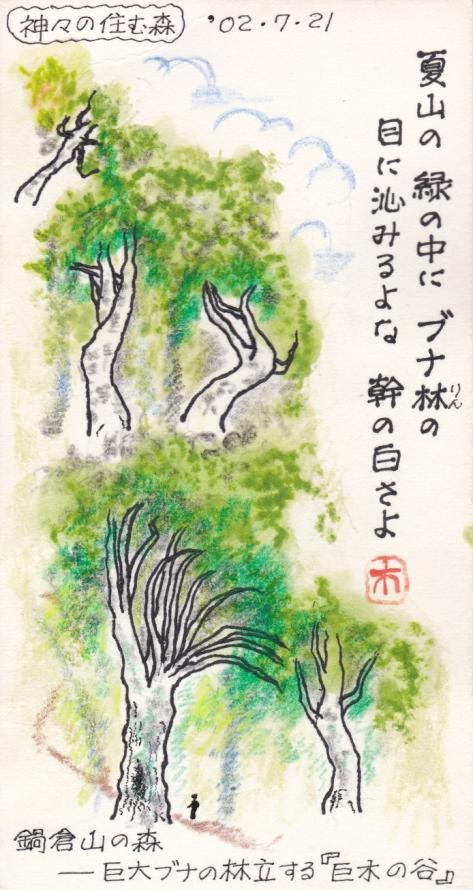 神々の住む森 '02.7.21
夏山の 緑の中に ブナ林の
りん
目に沁みるよな 幹の白さよ
禾
鍋倉山の森
—巨大ブナの林立する『巨木の谷』